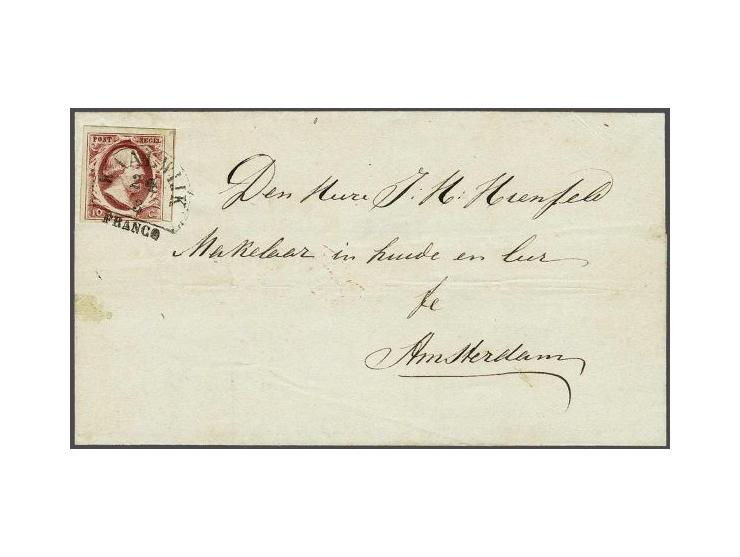 POST ZEGEL
10 C
WAALWIJK
24
FRANCO
Den Heere J. H. Hienfeld
Makelaar in huide en leer
te
Amsterdam